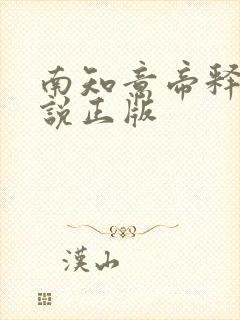 南知意帝释
說正版
漢山